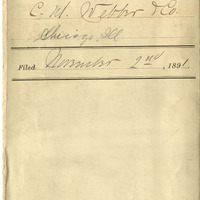 C. M. Webber & Co.
Chicago, Ill
Filed November 2nd, 1891.